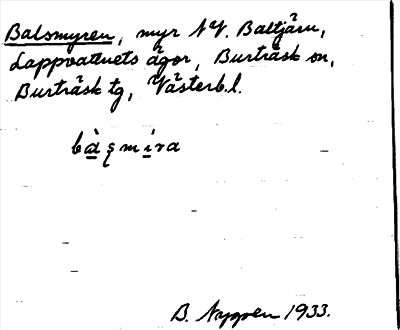 Balsmyren, myr NV. Baltjärn,
Lappvattnets ägor, Burträsk sn,
Burträsk tg, Västerb. l.
bàşmira
B. Nygren 1933.